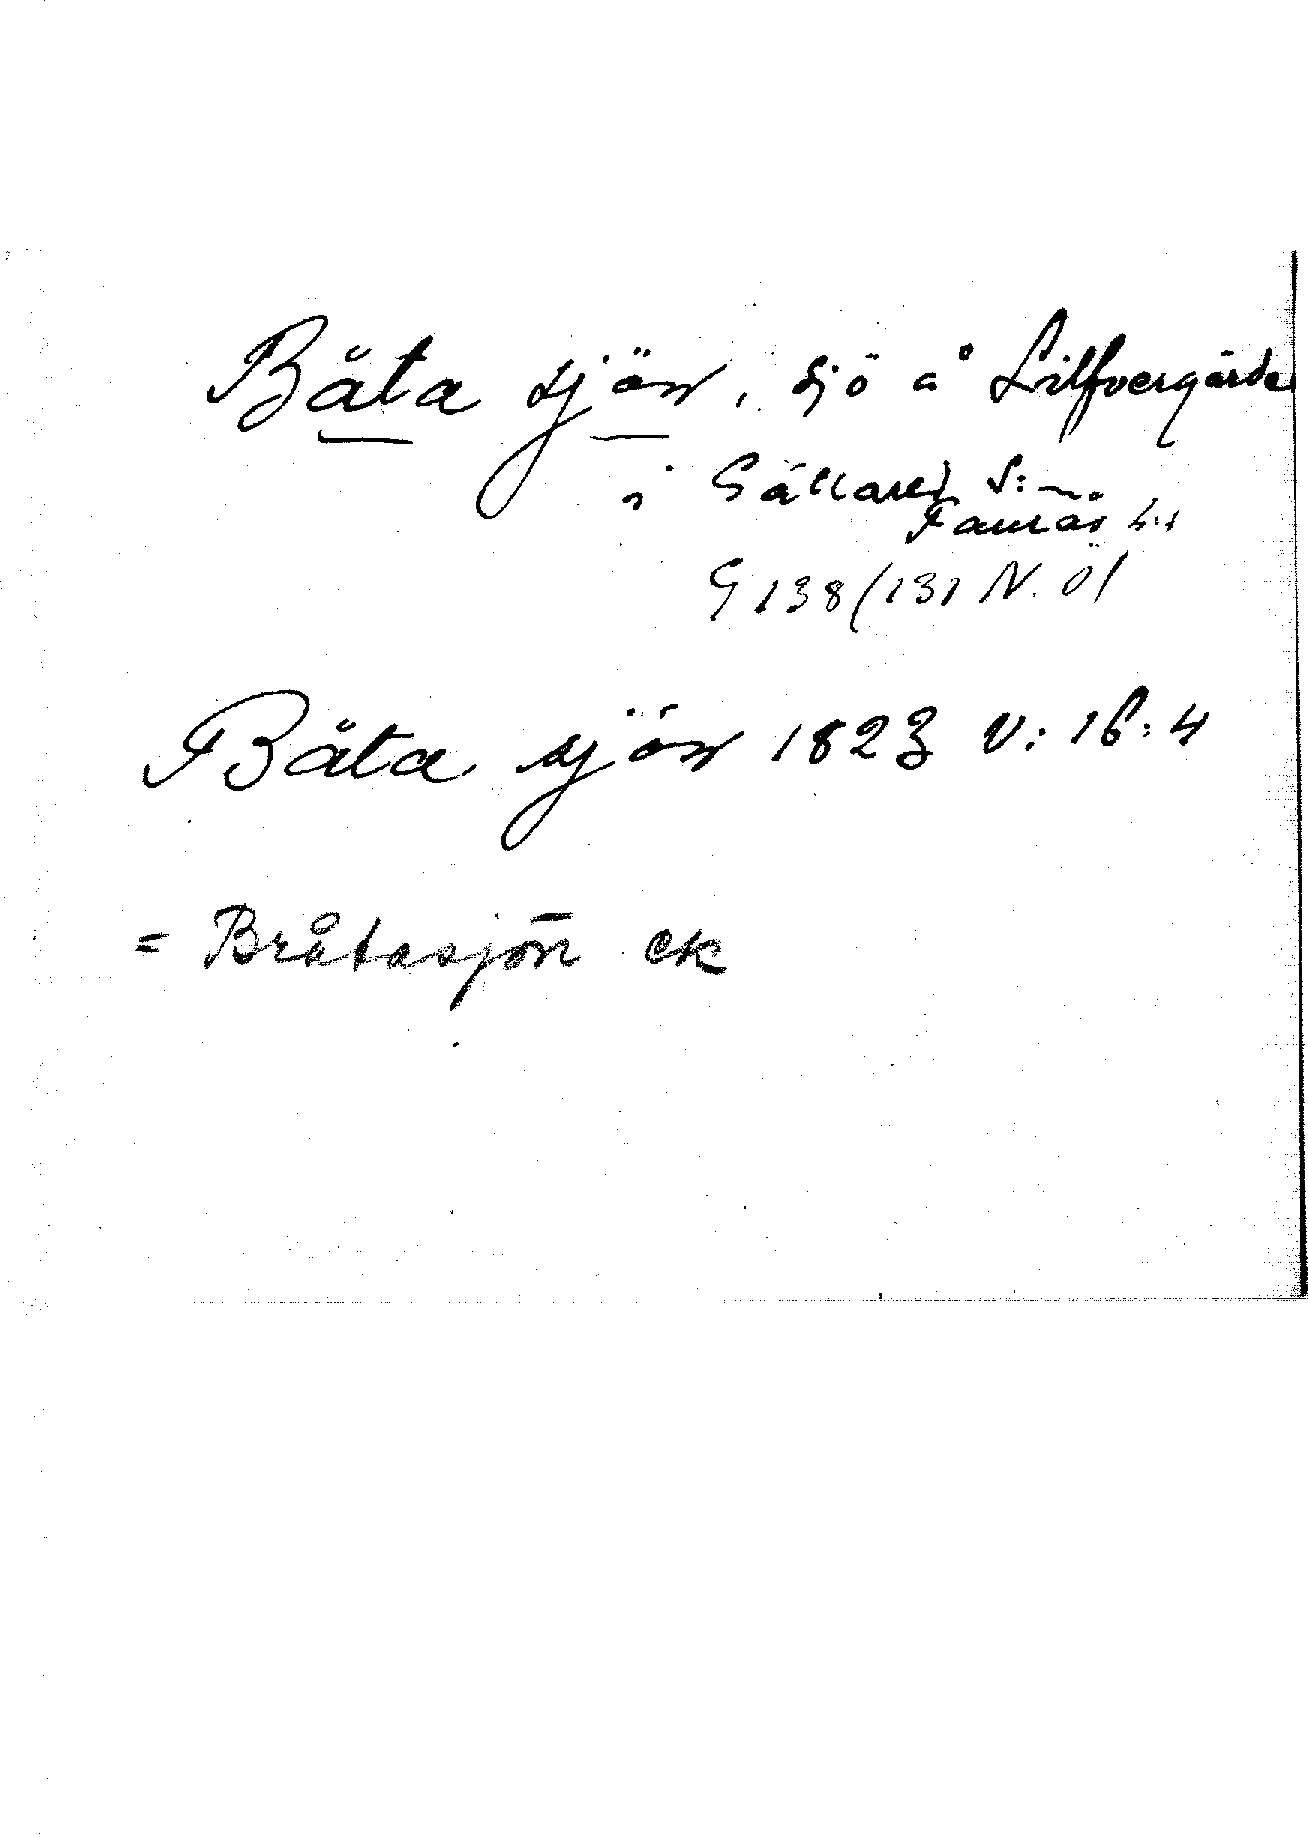 Båta sjön, sjö å Lilfvergärde
i Gällared s:n
Faurås h:d
G 138 (131 N. Ö)
Båta sjön 1823 V: 16: 4
= Bråtasjön ek